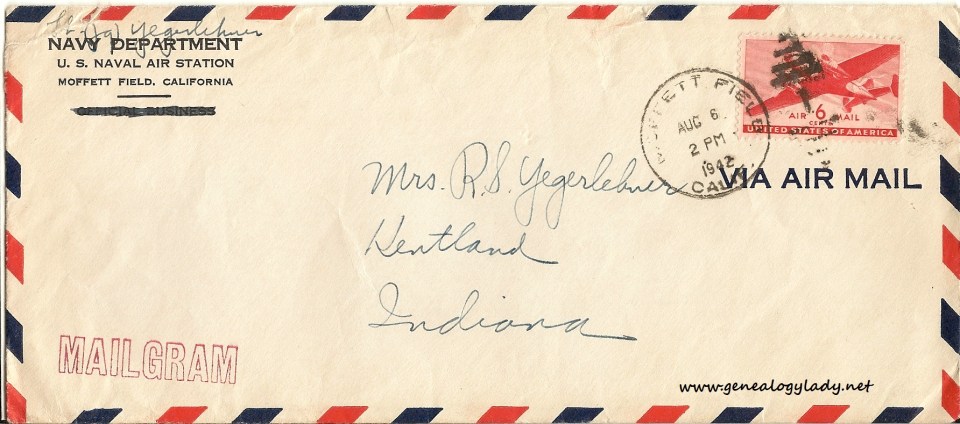 Lt (jg) Yegerlehner
NAVY DEPARTMENT
U. S. NAVAL AIR STATION
MOFFETT FIELD, CALIFORNIA
OFFICIAL BUSINESS
MOFFETT FIELD
AUG 6
2 PM
1942
CALIF.
AIR 6 MAIL
CENTS
UNITED STATES OF AMERICA
VIA AIR MAIL
Mrs. R.S. Yegerlehner
Kentland
Indiana
MAILGRAM
www.genealogylady.net